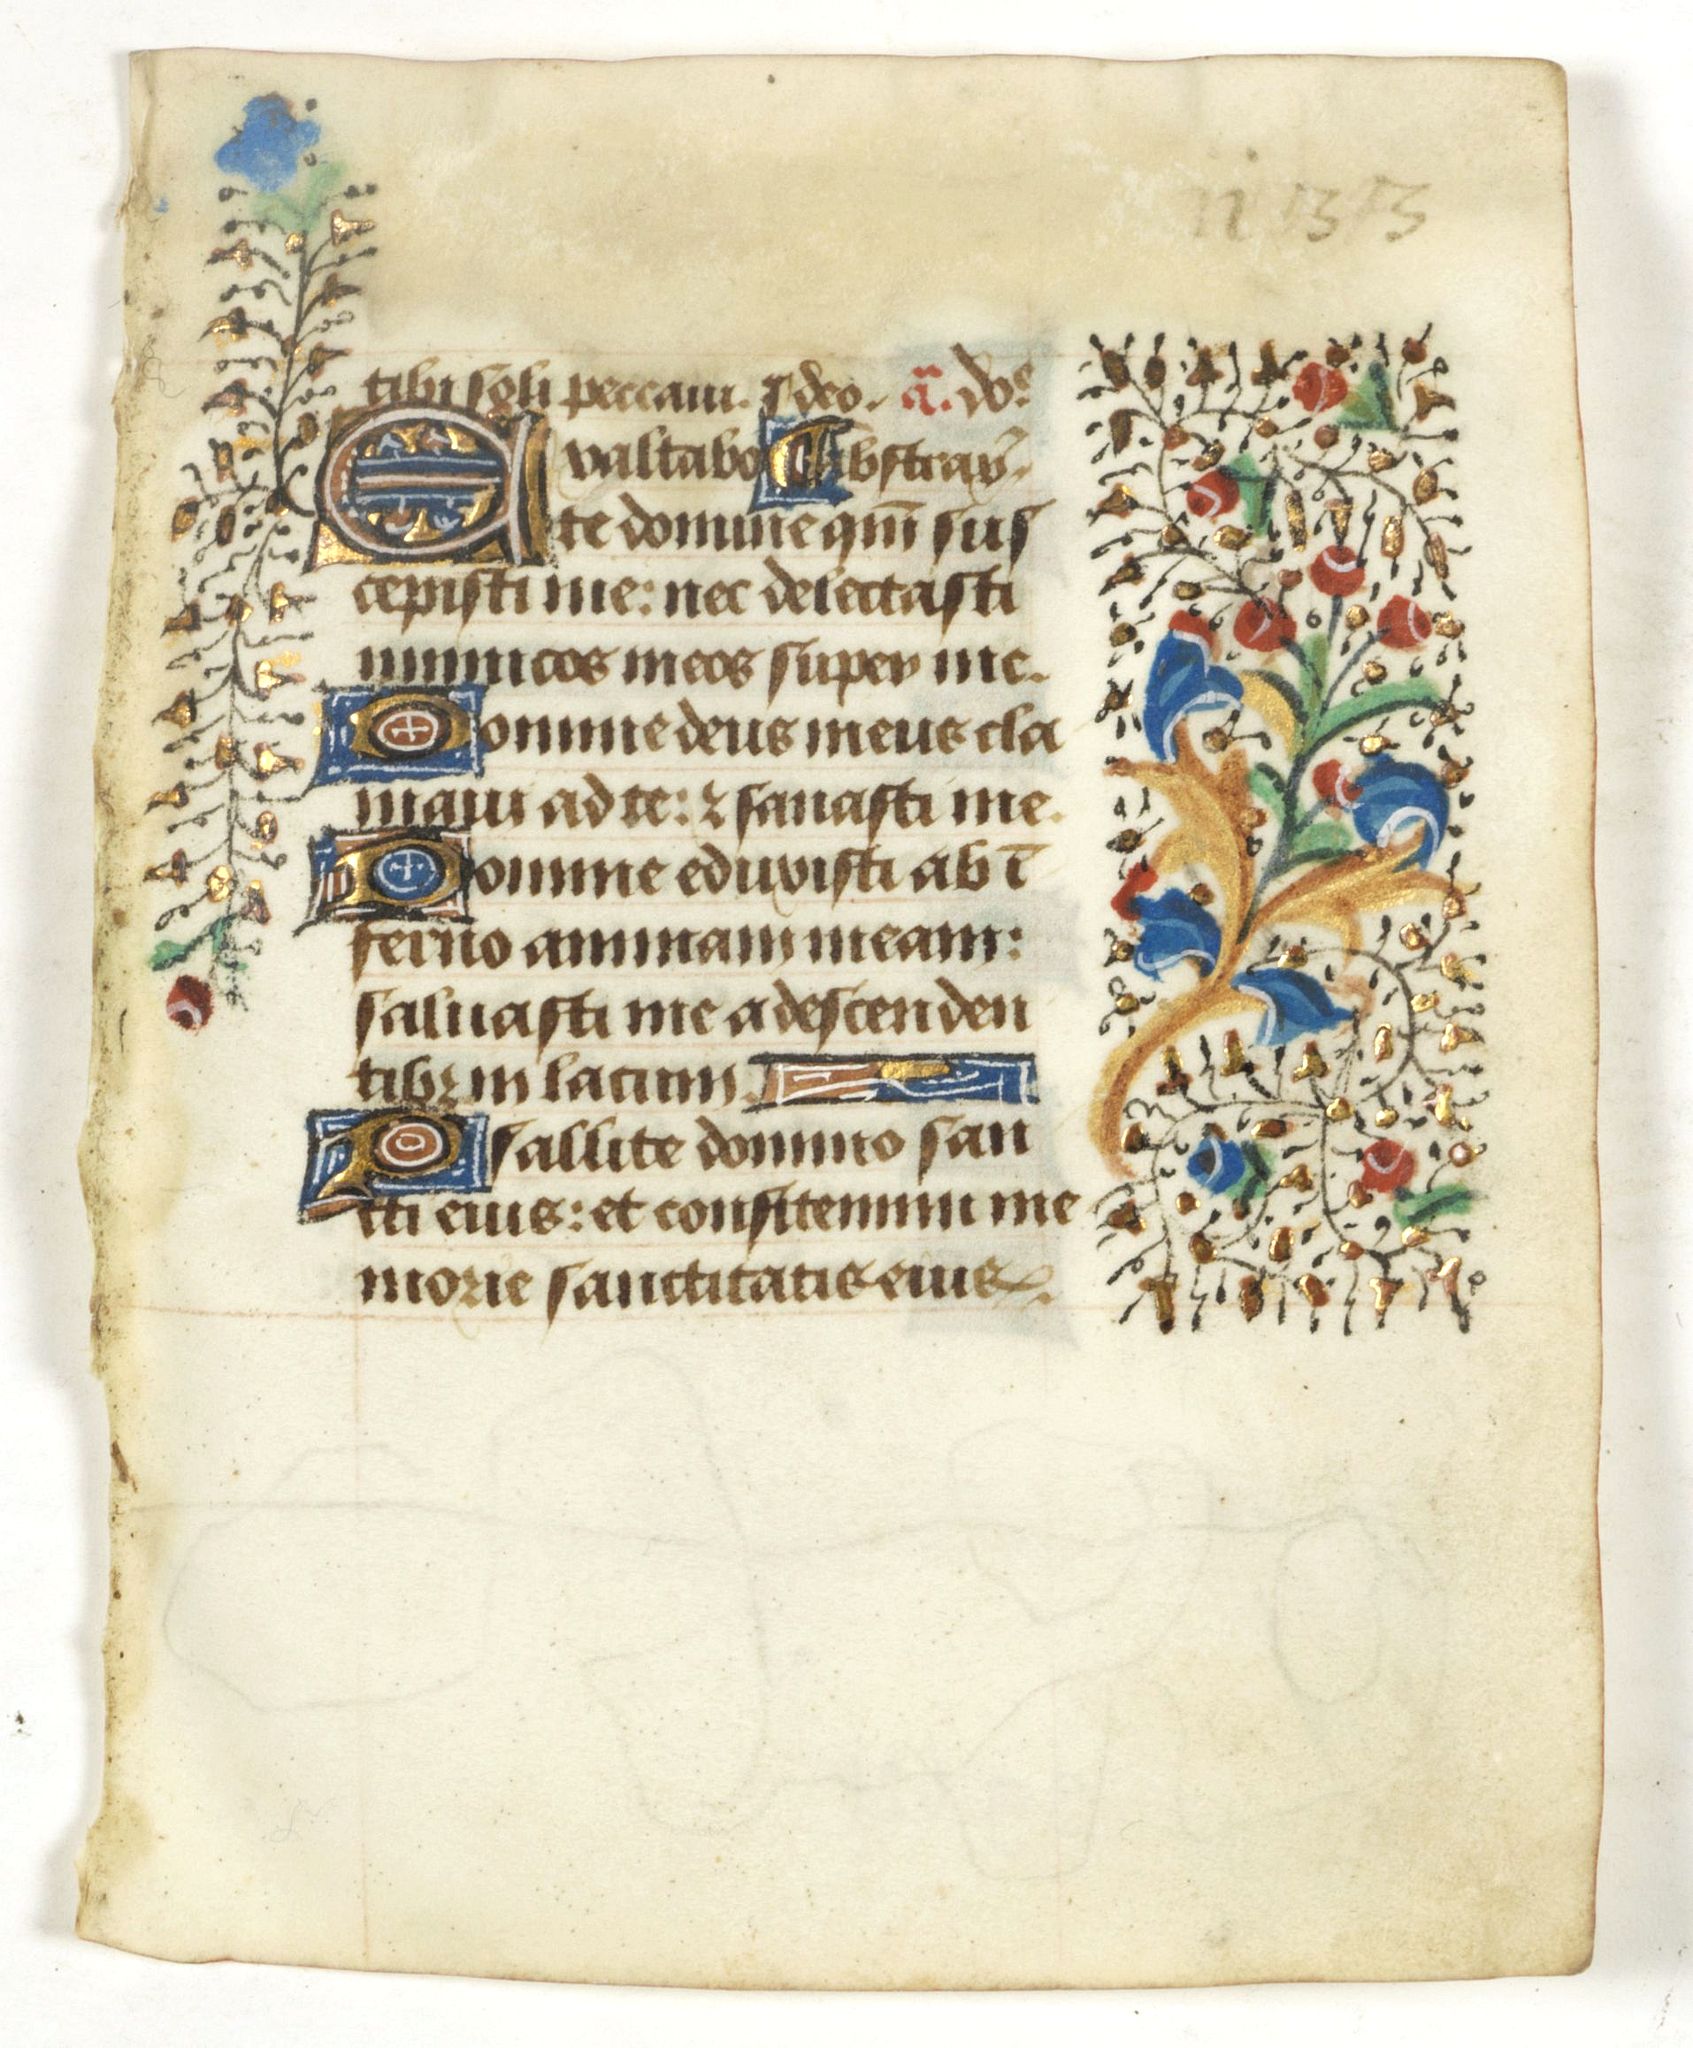 tibi soli peccaui. deo. ā.
Exaltabo Abstrax̄.
te domine qm̄ sus
cepisti me: nec delectasti
inimicos meos super me.
Domine deus meus cla
maui ad te: ⁊ sanasti me.
Domine eduxisti ab ī
ferno animam meam:
saluasti me a descenden
tibꝫ in lacum.
Psallite domino san
cti eius: et confitemini me
morie sanctitatis eius.